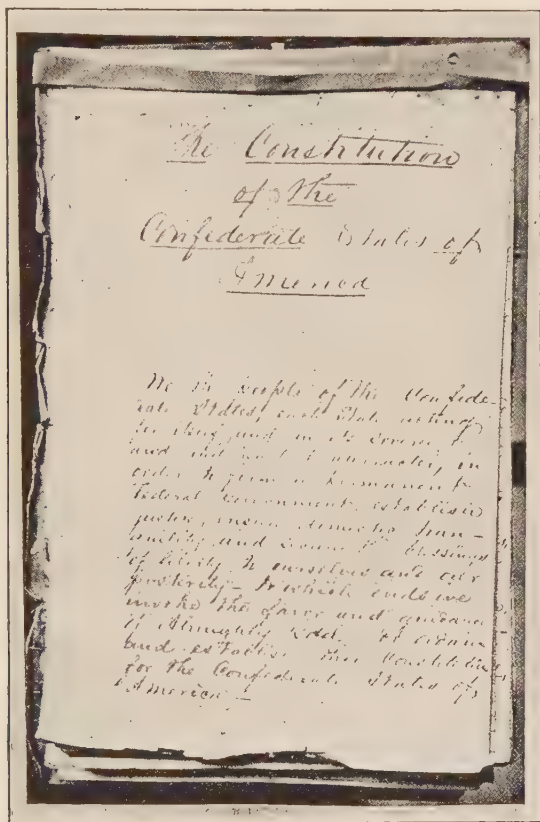 The Constitution
of the
Confederate States of
America
We the people of the Confede-
rate States, each State acting
for itself, and in its
and character, in
order to form a permanent
Federal Government, establish
justice, insure domestic tran-
quility and secure the blessings
of liberty to ourselves and our
posterity - to which ends we
invoke the favor and guidance
of Almighty God, do ordain
and establish this Constitution
for the Confederate States of
America -